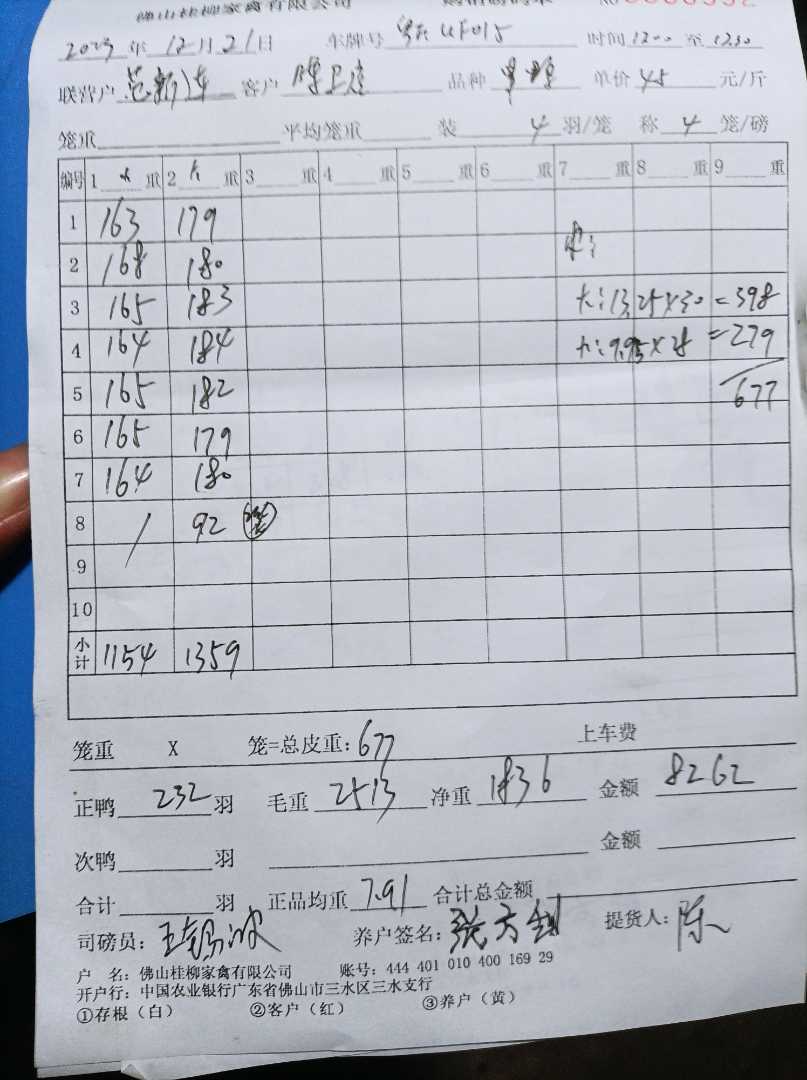 佛山桂柳家禽有限公司
2023 年 12 月 21 日 车牌号 UF015 时间 1200 至 1230
联营户 范新 客户 陈 品种 单价 4.5 元/斤
笼重 平均笼重 装 4 羽/笼 称 4 笼/磅
编号 1 大 重 2 大 重 3 重 4 重 5 重 6 重 7 重 8 重 9 重
1 163 179
2 168 180
3 165 183 大:13.25×30=398
4 164 184 大:9.95×28=279
5 165 182 677
6 165 179
7 164 180
8 / 92
9
10
小计 1154 1359
笼重 X 笼=总皮重: 677 上车费
正鸭 232 羽 毛重 2513 净重 1836 金额 8262
次鸭 羽 金额
合计 羽 正品均重 7.91 合计总金额
司磅员: 养户签名: 张方 提货人: 陈
户 名: 佛山桂柳家禽有限公司 账号: 444 401 010 400 169 29
开户行: 中国农业银行广东省佛山市三水区三水支行
①存根(白) ②客户(红) ③养户(黄)